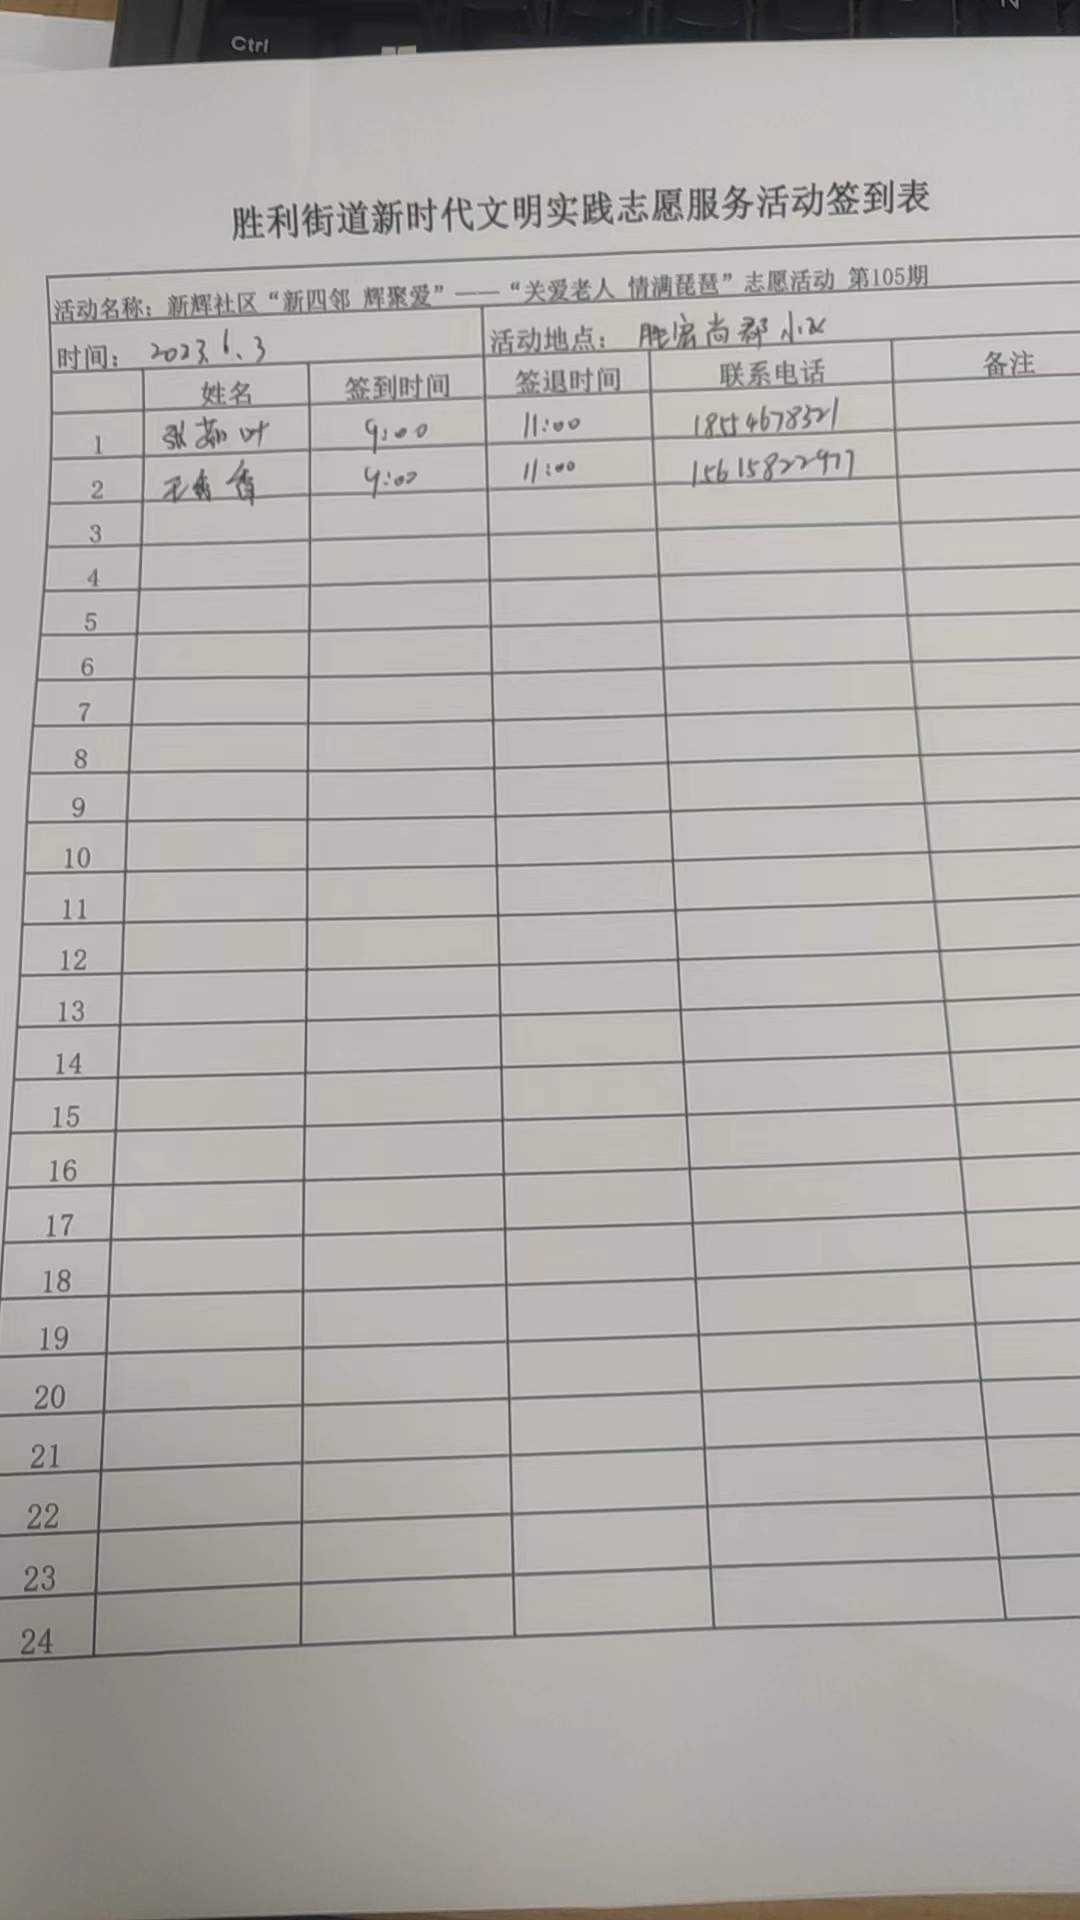 Ctrl
N
胜利街道新时代文明实践志愿服务活动签到表
活动名称：新辉社区“新四邻 辉聚爱”——“关爱老人 情满琵琶”志愿活动 第105期
时间： 2023.6.3 活动地点： 胜宏尚郡小区
姓名 签到时间 签退时间 联系电话 备注
1 张 叶 9:00 11:00 18554678321
2 王秀香 9:00 11:00 15615822977
3
4
5
6
7
8
9
10
11
12
13
14
15
16
17
18
19
20
21
22
23
24